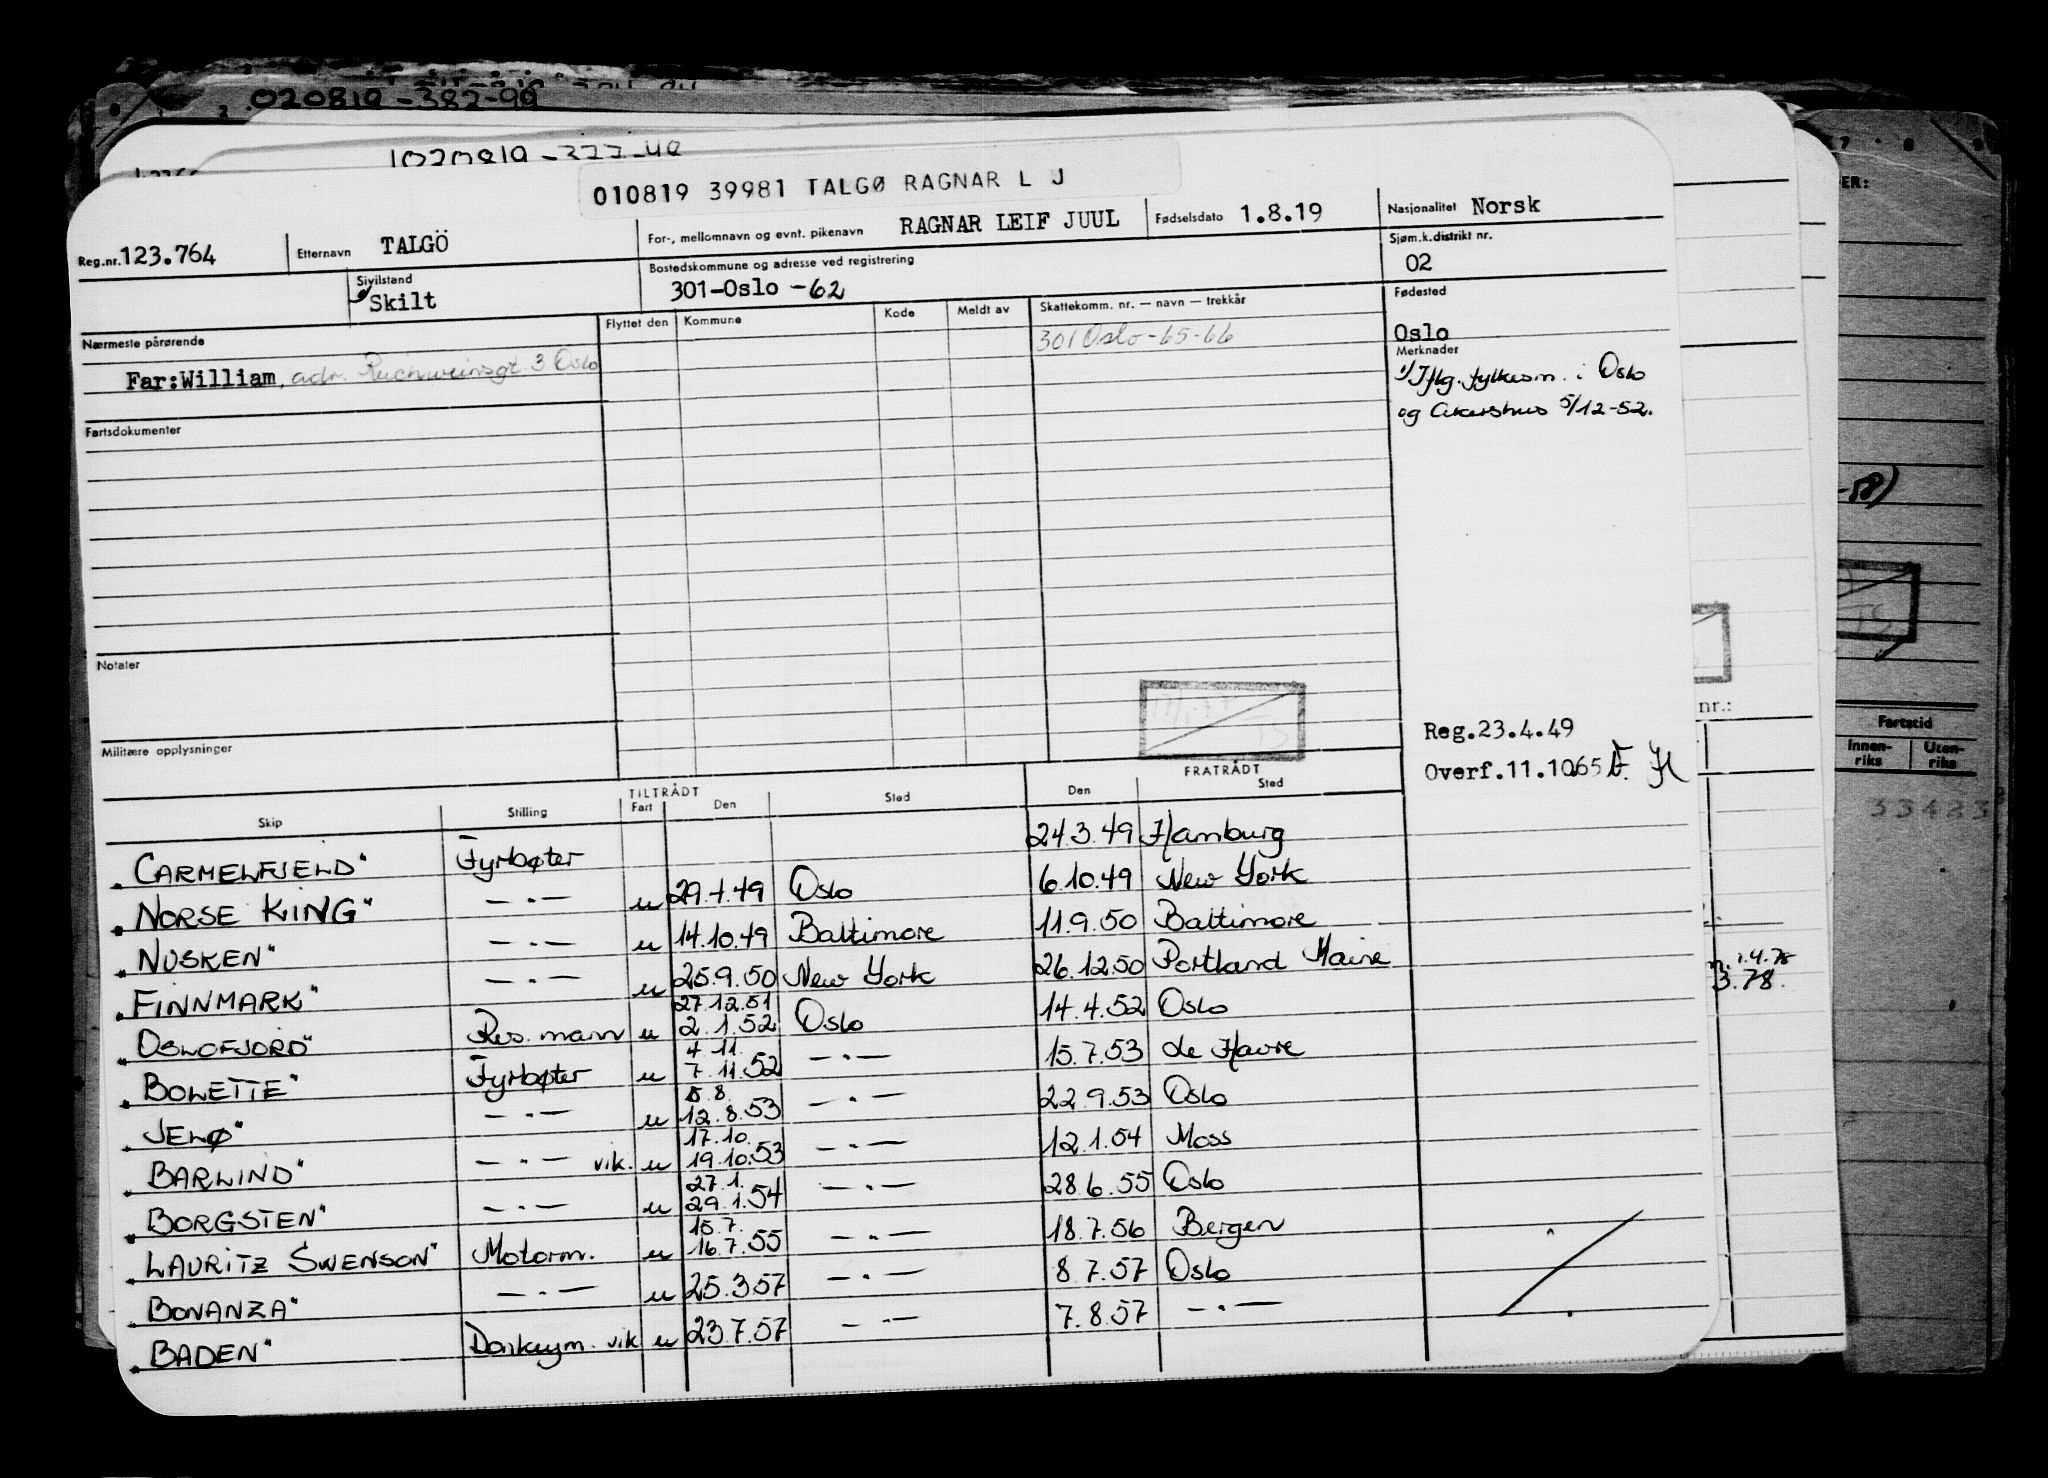 020819-382-90
010819 39981 TALGØ RAGNAR L J
Reg.nr. 123.764 Etternavn TALGÖ For-, mellomnavn og evnt. pikenavn RAGNAR LEIF JUUL Fødselsdato 1.8.19 Nasjonalitet Norsk
Sivilstand Skilt Bostedskommune og adresse ved registrering 301-Oslo -62 Sjøm.k.distrikt nr. 02
Nærmeste pårørende Flyttet den Kommune Kode Meldt av Skattekomm. nr. — navn — trekkår Fødested
301 Oslo -65-66 Oslo
Far:William, adr. Reichweinsgt. 3 Oslo
Merknader
1/ Iflg. fylkesm. i Oslo
og Akershus 5/12-52.
Fartsdokumenter
Notater
Militære opplysninger
Reg.23.4.49
Overf.11.10.65
TILTRÅDT FRATRÅDT
Skip Stilling Fart Den Sted Den Sted
"CARMELFJELD" Fyrbøter 24.3.49 Hamburg
"NORSE KING" —.— u 29.4.49 Oslo 6.10.49 New York
"NUSKEN" —.— u 14.10.49 Baltimore 11.9.50 Baltimore
"FINNMARK" —.— u 25.9.50 New York 26.12.50 Portland Maine
27.12.51
"OSLOFJORD" Res. mann u 2.1.52 Oslo 14.4.52 Oslo
4.11.
"BOLETTE" Fyrbøter u 7.11.52 —.— 15.7.53 Le Havre
8.8.
"JELØ" —.— u 12.8.53 —.— 22.9.53 Oslo
17.10.
"BARLIND" —.— vik. u 19.10.53 —.— 12.1.54 Moss
27.1.
"BORGSTEN" —.— u 29.1.54 —.— 28.6.55 Oslo
15.7.
"LAURITZ SWENSON" Motorm. u 16.7.55 —.— 18.7.56 Bergen
"BONANZA" —.— u 25.3.57 —.— 8.7.57 Oslo
"BADEN" Donkeym. vik u 23.7.57 —.— 7.8.57 —.—
ER:
nr.:
Fartstid
Innen-
riks
Uten-
riks
33423
1.4.78
3.78.